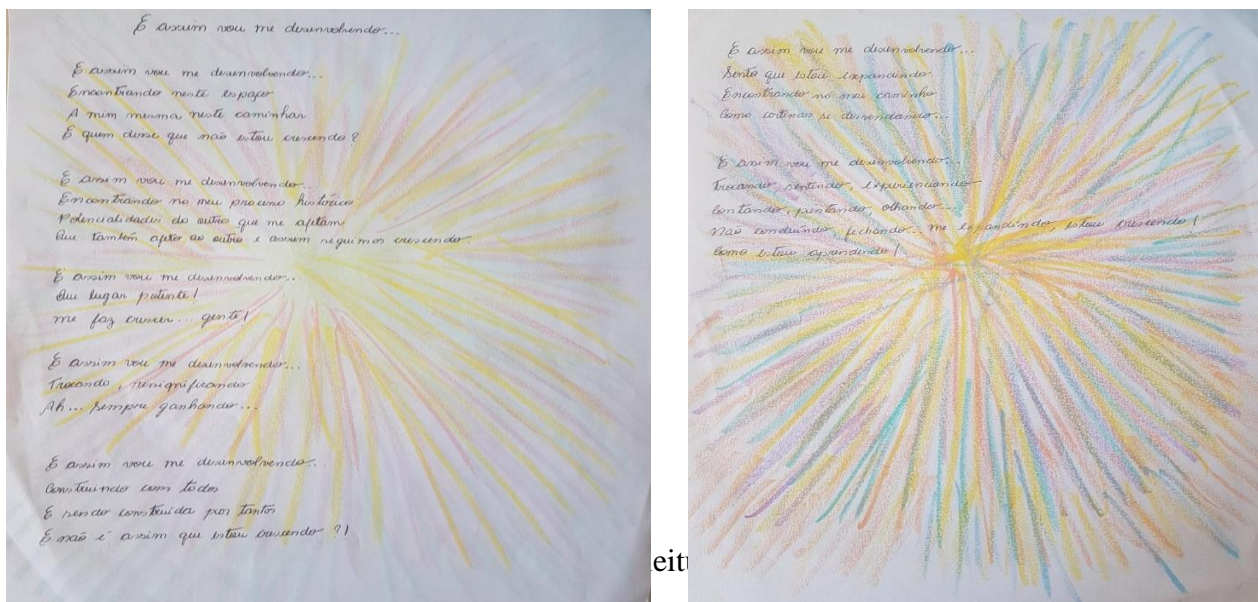 E assim vou me desenvolvendo...
E assim vou me desenvolvendo...
Encontrando neste espaço
A mim mesma neste caminhar
E quem disse que não estou crescendo?
E assim vou me desenvolvendo...
Encontrando no meu processo histórico
Potencialidades do outro que me afetam
Que também afeto ao outro e assim seguimos crescendo
E assim vou me desenvolvendo...
Que lugar potente!
me faz crescer... gente!
E assim vou me desenvolvendo...
Trocando, ressignificando
Ah... Sempre ganhando...
E assim vou me desenvolvendo...
Construindo com todos
E sendo construída por tantos
E não é assim que estou crescendo?!
E assim vou me desenvolvendo...
Sinto que estou expandindo
Encontrando no meu caminho
Como cortinas se desvendando...
E assim vou me desenvolvendo...
trocando, sentindo, experienciando
Contando, pintando, olhando...
Não concluindo, fechando... me expandindo, estou crescendo!
Como estou aprendendo!
eit